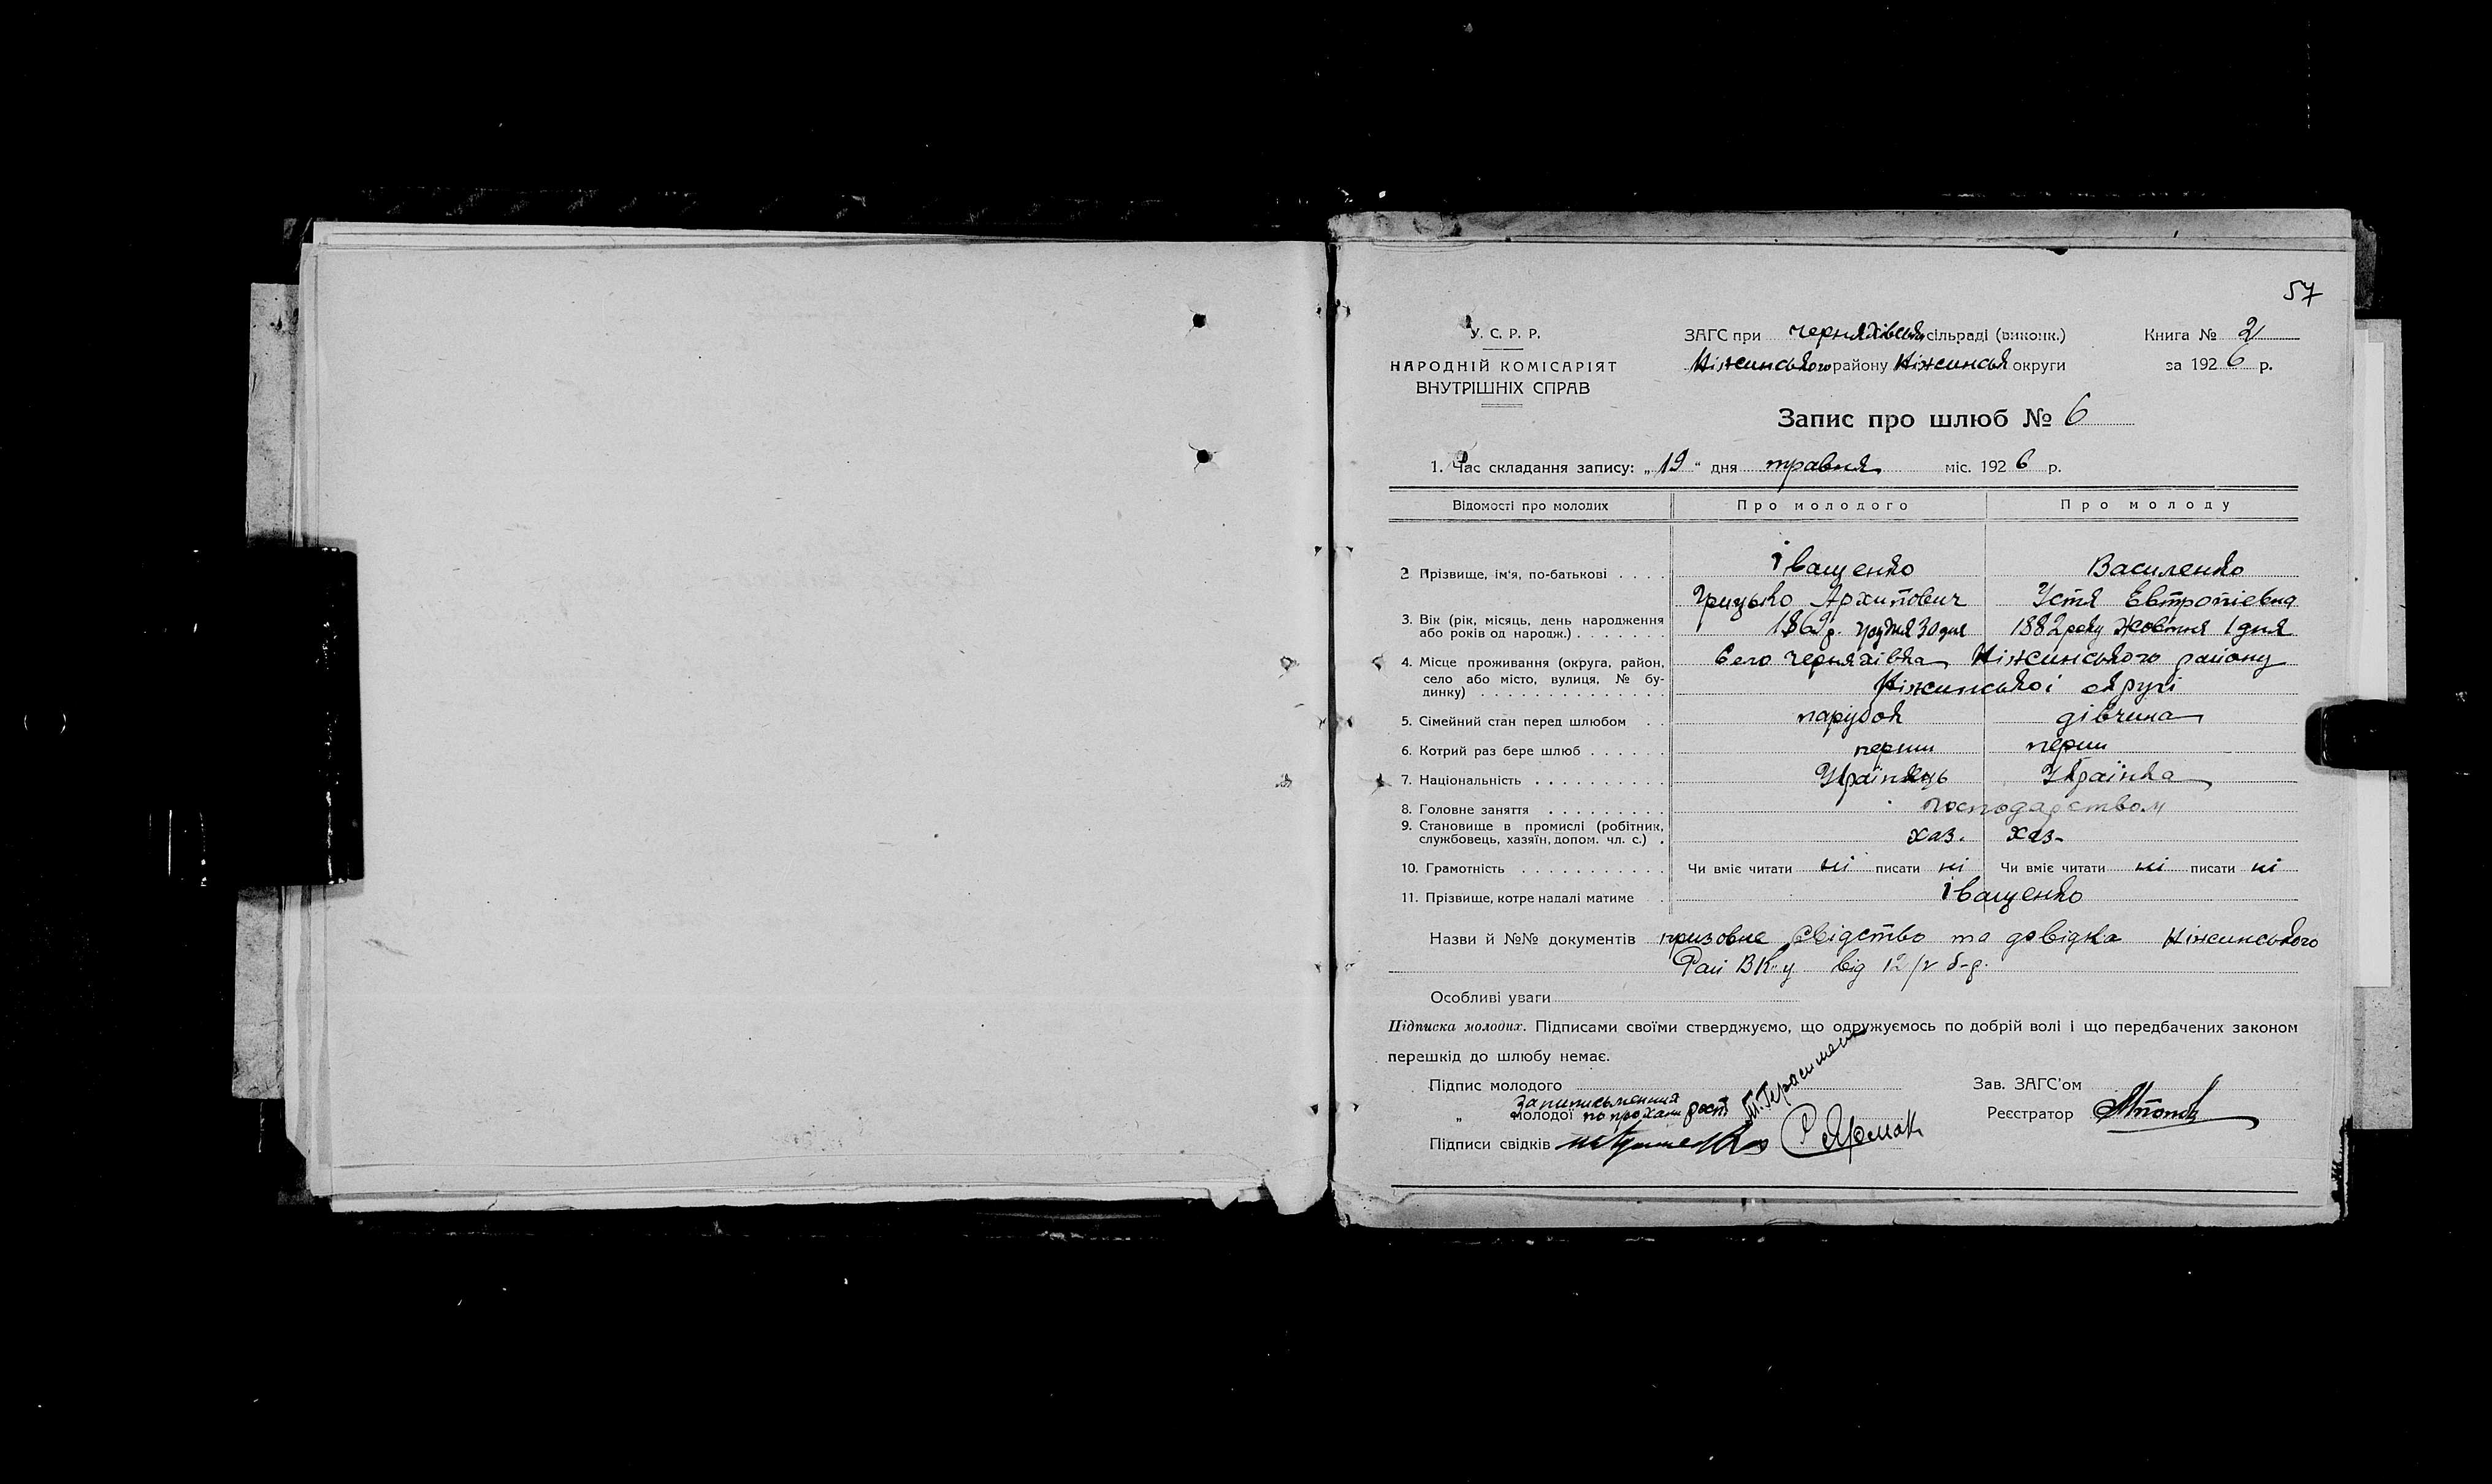 57
У. С. Р. Р.
НАРОДНІЙ КОМІСАРІЯТ
ВНУТРІШНІХ СПРАВ
ЗАГС при Черняхівській сільраді (виконк.)
Ніжинського району Ніжинськ округи
Книга № 2
за 1926 р.
Запис про шлюб № 6
1. Час складання запису: „19“ дня травня міс. 1926 р.
Відомості про молодих Про молодого Про молоду
2 Прізвище, ім'я, по-батькові . . . . Іващенко Василенко
Грицько Архипович Устя Евтропіевна
3. Вік (рік, місяць, день народження
або років од народж.) . . . . . . . 1869 р. грудня 30 дня 1882 року Жовтня 1 дня
4. Місце проживання (округа, район,
село або місто, вулиця, № бу-
динку) . . . . . . . . . . . . . .
Село Черняхівка Ніжинського району
Ніжинськоі окрузі
5. Сімейний стан перед шлюбом . . парубок дівчина
6. Котрий раз бере шлюб . . . . . . перши перши
7. Національність . . . . . . . . . . Украінець Українка
8. Головне заняття . . . . . . . . . господарством
9. Становище в промислі (робітник,
службовець, хазяїн, допом. чл. с.) . хаз. хаз-
10. Грамотність . . . . . . . . . . . Чи вміє читати ні писати ні Чи вміє читати ні писати ні
11. Прізвище, котре надалі матиме . Іващенко
Назви й №№ документів призовне свідство та довідка Ніжинського
Рай ВК-у від 12/V б-р.
Особливі уваги
Підписка молодих. Підписами своїми стверджуємо, що одружуємось по добрій волі і що передбачених законом
перешкід до шлюбу немає.
Підпис молодого
„ молодої по прохан рост Т. Герасименко
Підписи свідків Р Ярмак
Зав. ЗАГС'ом
Реєстратор